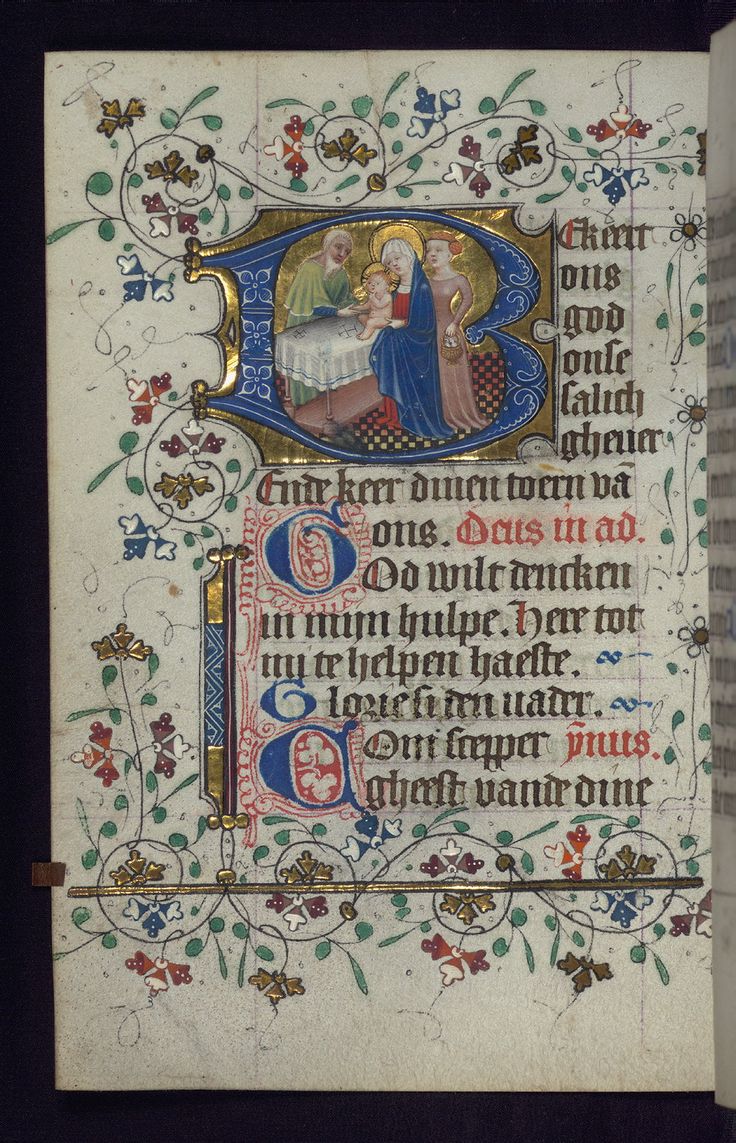 Bekeert
ons
god
onse
salich
gheuer
Ende keer dinen toern vā
ons. Deus in ad.
God wilt dencken
in mijn hulpe. Here tot
mi te helpen haeste.
Glorie si den vader.
Com scepper ȳnus.
gheest vande dine